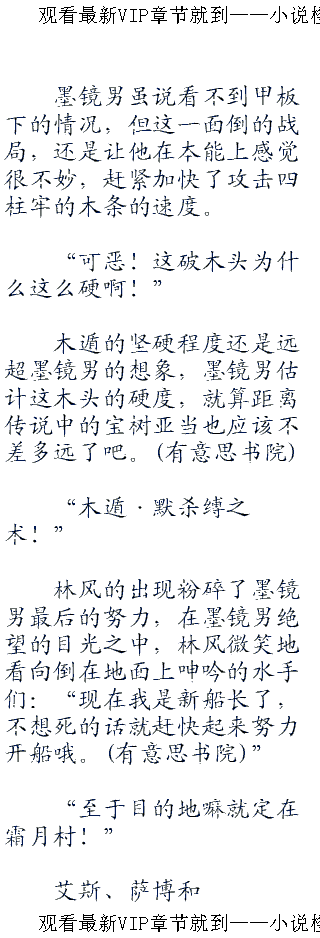 观看最新VIP章节就到——小说
墨镜男虽说看不到甲板
下的情况，但这一面倒的战
局，还是让他在本能上感觉
很不妙，赶紧加快了攻击四
柱牢的木条的速度。
“可恶！这破木头为什
么这么硬啊！”
木遁的坚硬程度还是远
超墨镜男的想象，墨镜男估
计这木头的硬度，就算距离
传说中的宝树亚当也应该不
差多远了吧。(有意思书院)
“木遁·默杀缚之
术！”
林风的出现粉碎了墨镜
男最后的努力，在墨镜男绝
望的目光之中，林风微笑地
看向倒在地面上呻吟的水手
们：“现在我是新船长了，
不想死的话就赶快起来努力
开船哦。(有意思书院)”
“至于目的地嘛就定在
霜月村！”
艾斯、萨博和
观看最新VIP章节就到——小说